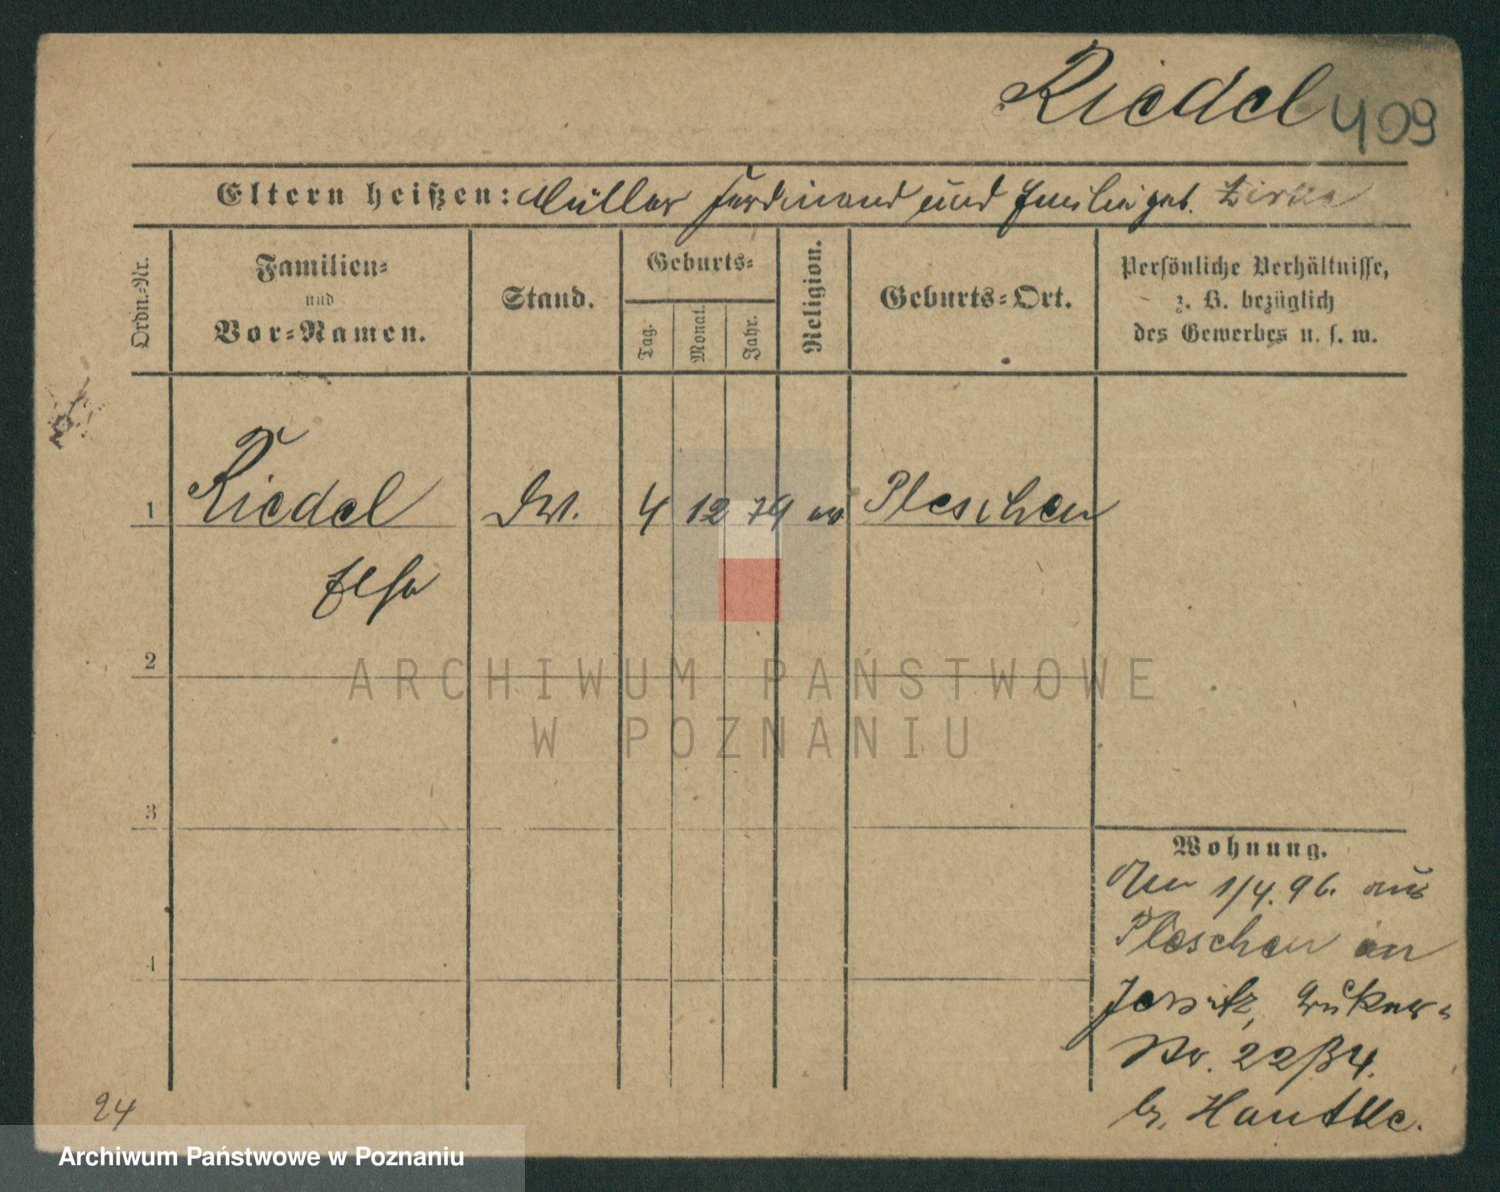 Riedel 409
Eltern heißen: Müller Ferdinand und Emilie geb. Zirke
Ordn.-Nr.
Familien-
und
Vor-Namen.
Stand.
Geburts-
Tag.
Monat.
Jahr.
Religion.
Geburts-Ort.
Persönliche Verhältnisse,
z. B. bezüglich
des Gewerbes u. s. w.
1 Riedel 4 12 79 ev Pleschen
Elsa
2
3
4
Wohnung.
1/4. 96. aus
Pleschen in
Jersitz,
Str. 22
b. Hantke.
24
ARCHIWUM PAŃSTWOWE
W POZNANIU
Archiwum Państwowe w Poznaniu